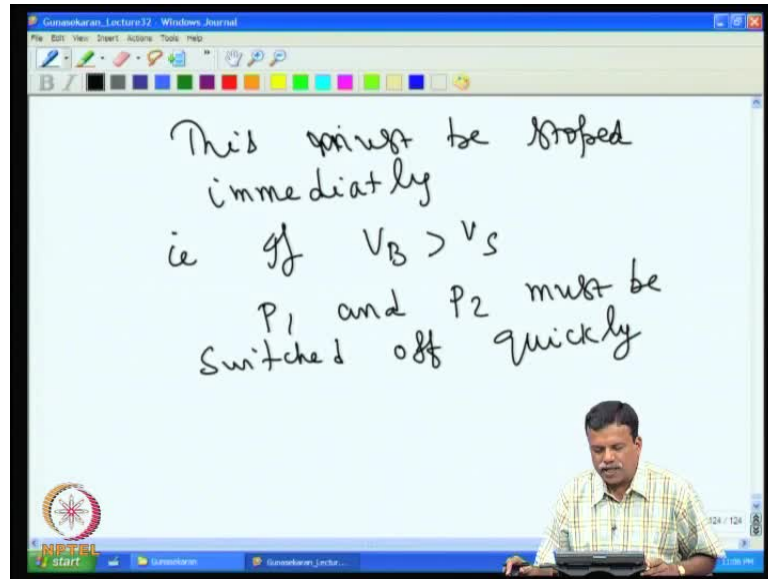 Gunasekaran_Lecture32 - Windows Journal
File Edit View Insert Actions Tools Help
B I
This must be stoped
immediatly
ie If VB > VS
P1 and P2 must be
switched off quickly
124 / 124
NPTEL
start Gunasekaran Gunasekaran_Lectur... 11:08 PM